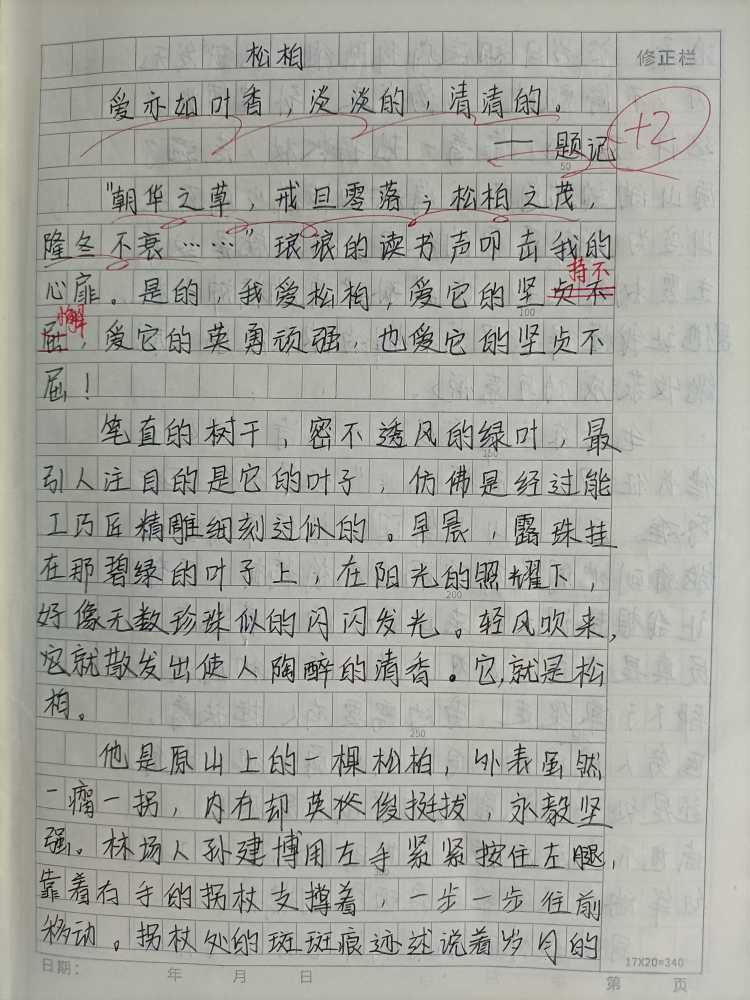 松柏
修正栏
爱亦如叶香，淡淡的，清清的。
+2
——题记
50
"朝华之草，戒旦零落；松柏之茂，
隆冬不衰……"琅琅的读书声叩击我的
持不
心扉。是的，我爱松柏，爱它的坚贞不
100
懈
屈，爱它的英勇顽强，也爱它的坚贞不
屈！
笔直的树干，密不透风的绿叶，最
150
引人注目的是它的叶子，仿佛是经过能
工巧匠精雕细刻过似的。早晨，露珠挂
在那碧绿的叶子上，在阳光的照耀下，
200
好像无数珍珠似的闪闪发光。轻风吹来，
它就散发出使人陶醉的清香。它，就是松
柏。
250
他是原山上的一棵松柏，外表虽然
一瘸一拐，内在却英俊挺拔，永毅坚
强。林场人孙建博用左手紧紧按住左腿，
靠着右手的拐杖支撑着，一步一步往前
移动。拐杖处的斑斑痕迹述说着岁月的
日期： 年 月 日
17X20=340
第 页